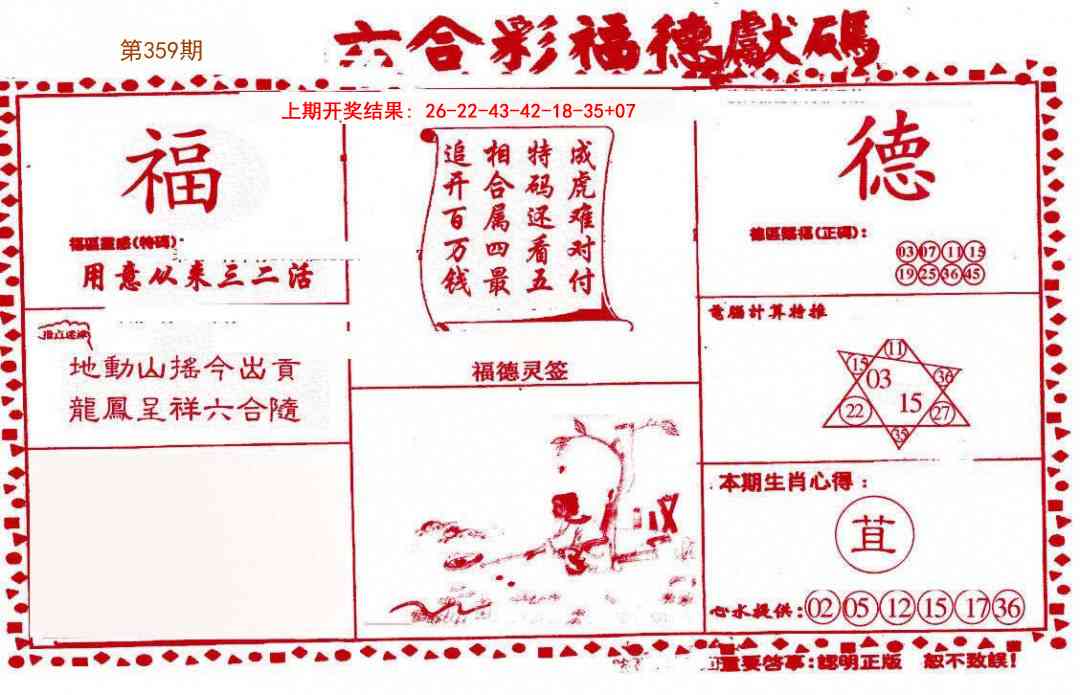 第359期
六合彩福德獻碼
上期开奖结果: 26-22-43-42-18-35+07
福
福區靈感(特碼):
用意从来三二活
地動山搖今出貢
龍鳳呈祥六合隨
成虎难对付
特码还看五
相合属四最
追开百万钱
福德灵签
德
德區賜福(正碼):
03 07 11 15
19 25 36 45
電腦計算特推
11
15 36
03
15
22 27
35
本期生肖心得:
苴
心水提供:02 05 12 15 17 36
重要啓事:認明正版 恕不致誤!